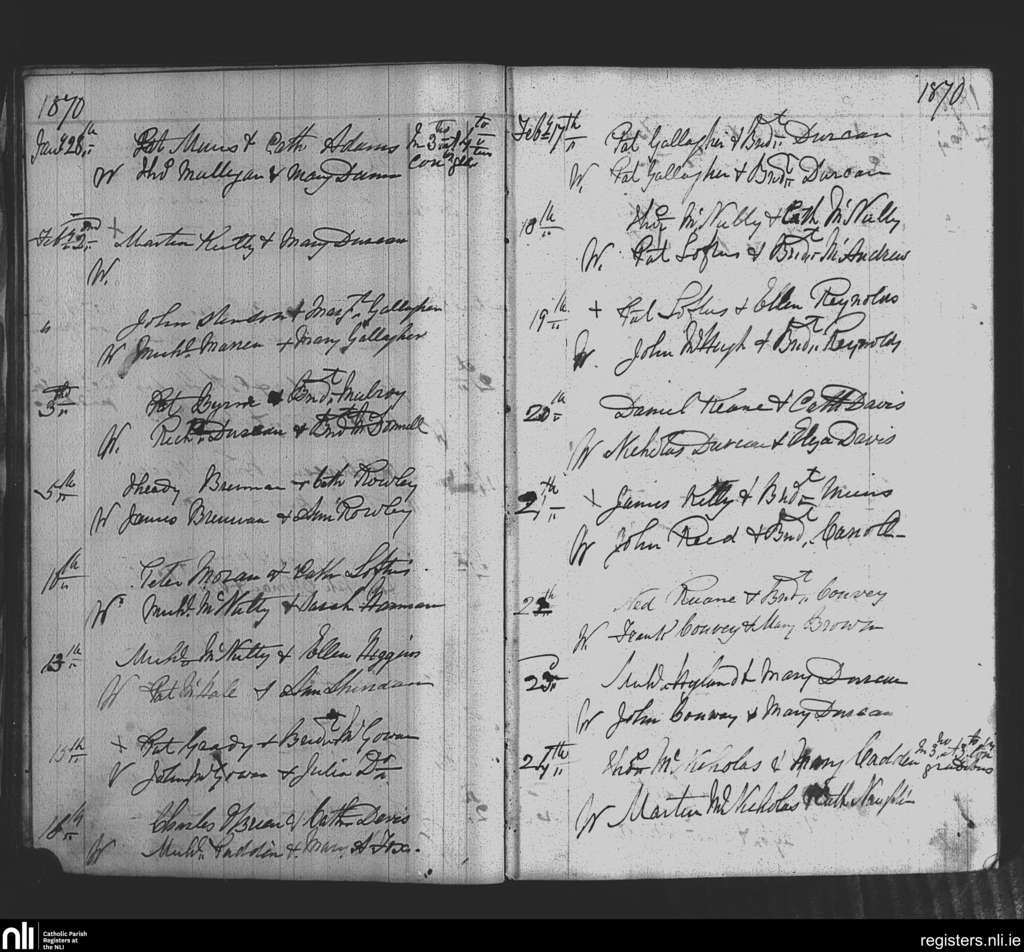 1870
Jany 28th Pat Muns & Cath Adams In 3rd & 4to
W Thos Mulligan & Mary Dunn con
Feby 2nd + Martin & Mary Duncan
W.
" John & Margt Gallagher
W Michl Warren + Mary Gallagher
3rd Pat Byrne & Bridt Mulroy
W. Richd Duncan & Bridt McDonnell
5th Thady Brennan & Cath Rowley
W James Brennan & Ann Rowley
10th Peter Moran & Cath Loftus
W Michl McNulty & Sarah
13th Michl McNulty & Ellen Higgins
W Pat McHale & Ann Sheridan
15th + Pat Grady & Bridt McGowan
W John McGowan & Julia Do
18th Charles O'Brien & Cath Davis
W Michl Padden & Mary A Fox.
1870
Feby 17th Pat Gallagher & Bridt Duncan
W. Pat Gallagher & Bridt Duncan
18th Thos McNulty & Cath McNulty
W. Pat Loftus & Bridt McAndrew
19th + Pat Loftus & Ellen Reynolds
W. John McHugh & Bridt Reynolds
20th Daniel Keane & Cath Davis
W Nicholas Duncan & Eliza Davis
21th + James Kelly & Bridt Muns
W John Reed & Bridt Carroll
22th Ned Ruane & Bridt Convey
W. Frank Convey & Mary Brown
23rd Michl Hyland & Mary Duncan
W John Conway & Mary Duncan
24th Thos McNicholas & Mary Cadden In 3rd
W Martin McNicholas & Cath Naughton
nli
Catholic Parish
Registers at
the NLI
registers.nli.ie